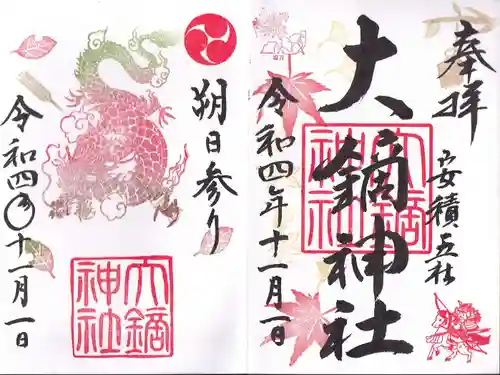 奉拝
安積五社
大鏑神社
大鏑
神社
令和四年十一月一日
朔日参り
大鏑
神社
令和四年十一月一日